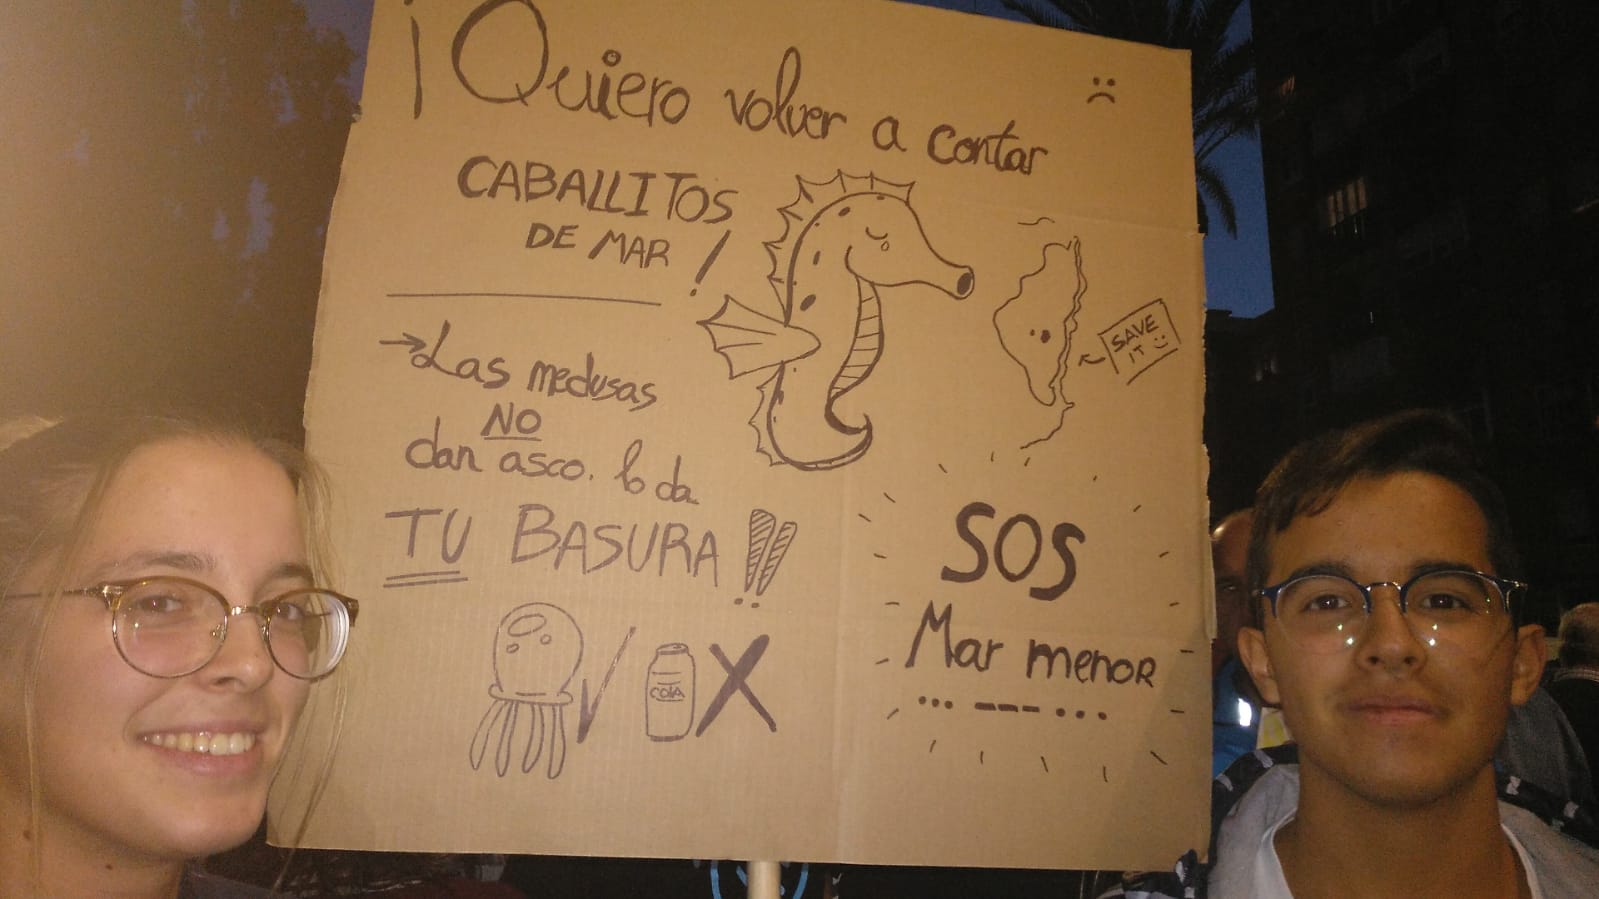 ¡Quiero volver a contar :(
CABALLITOS
DE MAR !
→ Las medusas
NO
dan asco. lo da
TU BASURA !!
COLA
SAVE
IT :)
SOS
Mar menor
... --- ...